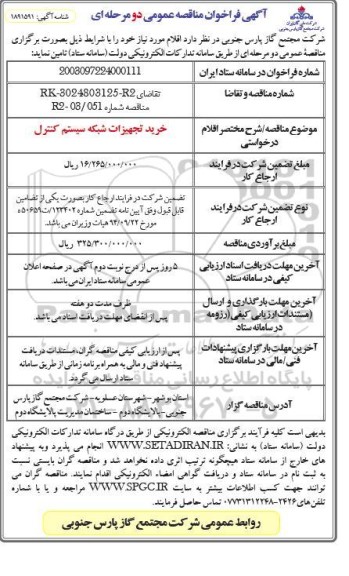 آگهی فراخوان مناقصه عمومی دو مرحله ای
شناسه آگهی: ۱۸۹۱۵۹۱
شرکت مجتمع گاز پارس جنوبی در نظر دارد اقلام مورد نیاز خود را با شرایط ذیل بصورت برگزاری مناقصه عمومی دو مرحله ای از طریق سامانه تدارکات الکترونیکی دولت (سامانه ستاد) تامین نماید:
شماره فراخوان در سامانه ستاد ایران
2003097224000111
شماره مناقصه و تقاضا
تقاضای RK-3024803125-R2
مناقصه شماره R2- 03/051
موضوع مناقصه/شرح مختصر اقلام درخواستی
خرید تجهیزات شبکه سیستم کنترل
مبلغ تضمین شرکت در فرایند ارجاع کار
۱۶/۲۶۵/۰۰۰/۰۰۰ ریال
نوع تضمین شرکت در فرایند ارجاع کار
تضمین شرکت در فرایند ارجاع کار بصورت یکی از تضامین قابل قبول وفق آیین نامه تضمین شماره ۱۲۳۴۰۲/ت۵۰۶۵۹ه مورخ ۹۴/۰۹/۲۲ هیات وزیران می باشد.
مبلغ برآوردی مناقصه
۳۲۵/۳۰۰/۰۰۰/۰۰۰ ریال
آخرین مهلت دریافت اسناد ارزیابی کیفی در سامانه ستاد
۵ روز پس از درج نوبت دوم آگهی در صفحه اعلان عمومی سامانه ستاد ایران می باشد.
آخرین مهلت بارگذاری و ارسال (مستندات ارزیابی کیفی (رزومه در سامانه ستاد
ظرف مدت دو هفته
پس از انقضای مهلت دریافت اسناد می باشد.
آخرین مهلت بارگزاری پیشنهادات فنی/مالی در سامانه ستاد
پس از ارزیابی کیفی مناقصه گران، مستندات دریافت پیشنهاد فنی و مالی به همراه برنامه زمانی از طریق سامانه ستاد ارسال می گردد
آدرس مناقصه گزار
استان بوشهر - شهرستان عسلویه - شرکت مجتمع گاز پارس جنوبی - پالایشگاه دوم - ساختمان مدیریت پالایشگاه دوم
بدیهی است کلیه فرآیند برگزاری مناقصه الکترونیکی از طریق درگاه سامانه تدارکات الکترونیکی دولت (سامانه ستاد) به نشانی: WWW.SETADIRAN.IR انجام می پذیرد و به پیشنهاد های خارج از سامانه ستاد هیچگونه ترتیب اثری داده نخواهد شد و مناقصه گران بایستی نسبت به ثبت نام در سامانه ستاد و دریافت گواهی امضاء الکترونیکی اقدام نمایند. مناقصه گران می توانند جهت کسب اطلاعات بیشتر به سایت WWW.SPGC.IR مراجعه و یا با شماره تلفن های ۲۴۲۶-۰۷۷۳۱۳۱۲۲۴۸ تماس حاصل فرمایند.
روابط عمومی شرکت مجتمع گاز پارس جنوبی